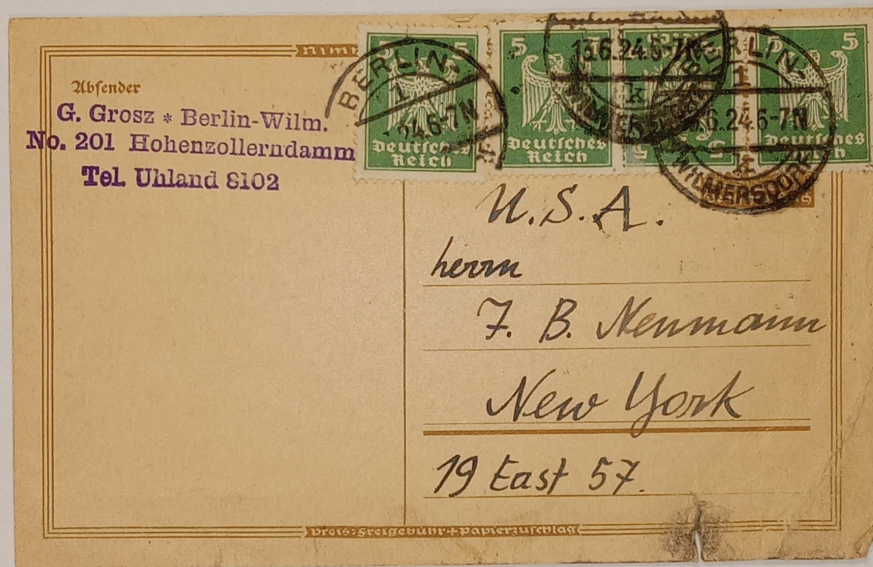 Nimm
Absender
G. Grosz * Berlin-Wilm.
No. 201 Hohenzollerndamm
Tel. Uhland 8102
5 5
BERLIN-
1
24.6-7N
Deutsches
Reich
5
Deutsches
Reich
13.6.24.6-7N
k
WILMERSDORF
5
5
BERLIN-
1
6.24.6-7N
k
WILMERSDORF
Deutsches
Reich
U.S.A.
herrn
J. B. Neumann
New York
19 East 57.
Preis: Freigebühr + Papierzuschlag